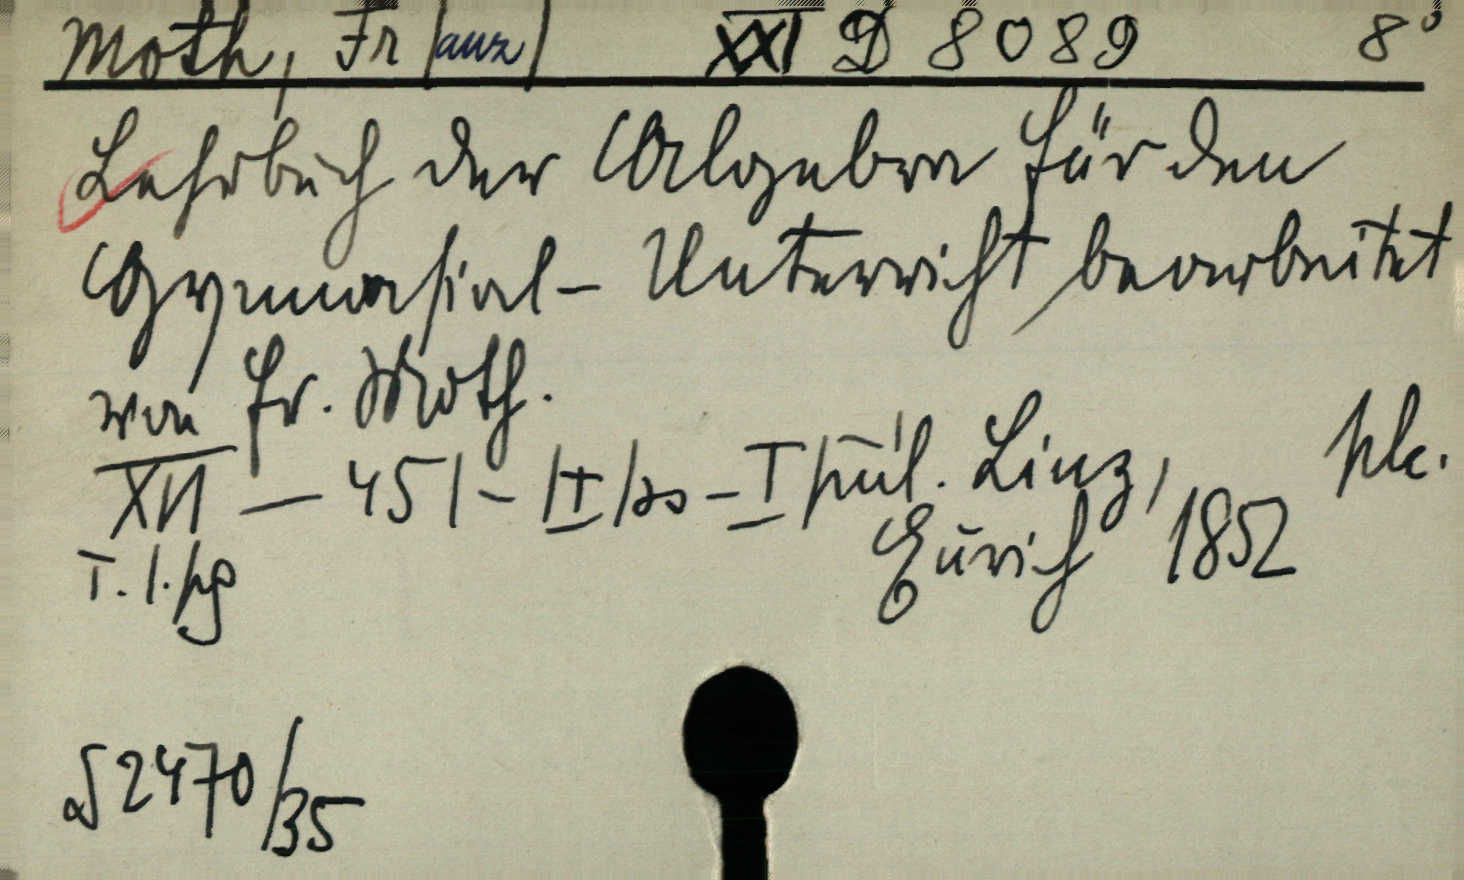 Moth, Fr[anz] XXI D 8089 8°
Lehrbuch der Algebra für den
Gymnasial-Unterricht bearbeitet
von Fr. Moth.
XII — 451 – [I] – I Linz,
Zürich, 1852
T. 1. pg
2470/35